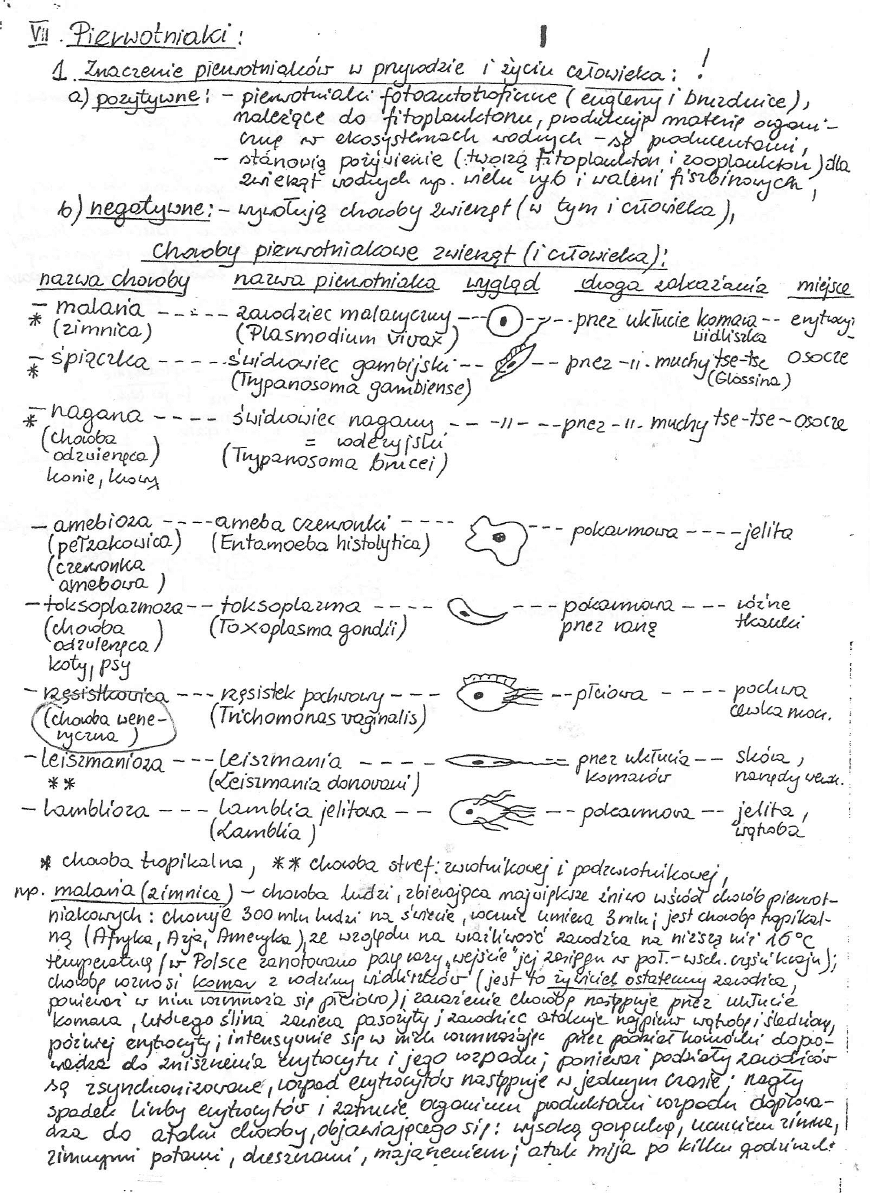 VII. Pierwotniaki:
1. Znaczenie pierwotniaków w przyrodzie i życiu człowieka: !
a) pozytywne: - pierwotniaki fotoautotroficzne (eugleny i bruzdnice),
należące do fitoplanktonu, produkują materię organi-
czną w ekosystemach wodnych - są producentami,
- stanowią pożywienie (tworzą fitoplankton i zooplankton) dla
zwierząt wodnych np. wielu ryb i waleni fiszbinowych,
b) negatywne: - wywołują choroby zwierząt (w tym i człowieka),
Choroby pierwotniakowe zwierząt (i człowieka):
nazwa choroby nazwa pierwotniaka wygląd droga zakażania miejsce
- malaria --- zarodziec malaryczny --- przez ukłucie komara -- erytrocy-
* (zimnica) (Plasmodium vivax) widliszka
- śpiączka ----- świdrowiec gambijski -- przez -II- muchy tse-tse osocze
* (Trypanosoma gambiense) (Glossina)
- nagana ---- świdrowiec nagany -- -II- -- przez -II- muchy tse-tse - osocze
* (choroba = rodezyjski
odzwierzęca) (Trypanosoma brucei)
konie, krowy
- amebioza ---- ameba czerwonki ---- pokarmowa ---- jelita
(pełzakowica) (Entamoeba histolytica)
(czerwonka
amebowa)
- toksoplazmoza -- toksoplazma ---- pokarmowa --- różne
(choroba (Toxoplasma gondii) przez ranę tkanki
odzwierzęca)
koty, psy
- rzęsistkowica --- rzęsistek pochwowy --- płciowa - --- pochwa
(choroba wene- (Trichomonas vaginalis) cewka mocz.
ryczna)
- leiszmanioza --- leiszmania ---- przez ukłucia -- skóra,
** (Leiszmania donovani) komarów narządy wewn.
- lamblioza --- lamblia jelitowa -- pokarmowa -- jelita,
(Lamblia) wątroba
* choroba tropikalna, ** choroba stref: zwrotnikowej i podzwrotnikowej,
np. malaria (zimnica) - choroba ludzi, zbierająca największe żniwo wśród chorób pierwot-
niakowych: choruje 300 mln ludzi na świecie, rocznie umiera 3 mln; jest chorobą tropikal-
ną (Afryka, Azja, Ameryka), ze względu na wrażliwość zarodźca na niższą niż 16°C
temperaturę (w Polsce zanotowano parę razy "wejście" jej zasięgu w poł.-wsch. części kraju);
chorobę roznosi komar z rodziny widliszków (jest to żywiciel ostateczny zarodźca,
ponieważ w nim rozmnaża się płciowo); zarażenie chorobą następuje przez ukłucie
komara, którego ślina zawiera pasożyty; zarodziec atakuje najpierw wątrobę i śledzionę,
później erytrocyty; intensywnie się w nich rozmnażając przez podział komórki dopro-
wadza do zniszczenia erytrocytu i jego rozpadu; ponieważ podziały zarodźców
są zsynchronizowane, rozpad erytrocytów następuje w jednym czasie; nagły
spadek liczby erytrocytów i zatrucie organizmu produktami rozpadu doprowa-
dza do ataku choroby, objawiającego się: wysoką gorączką, uczuciem zimna,
zimnymi potami, dreszczami, majaczeniem; atak mija po kilku godzinach.